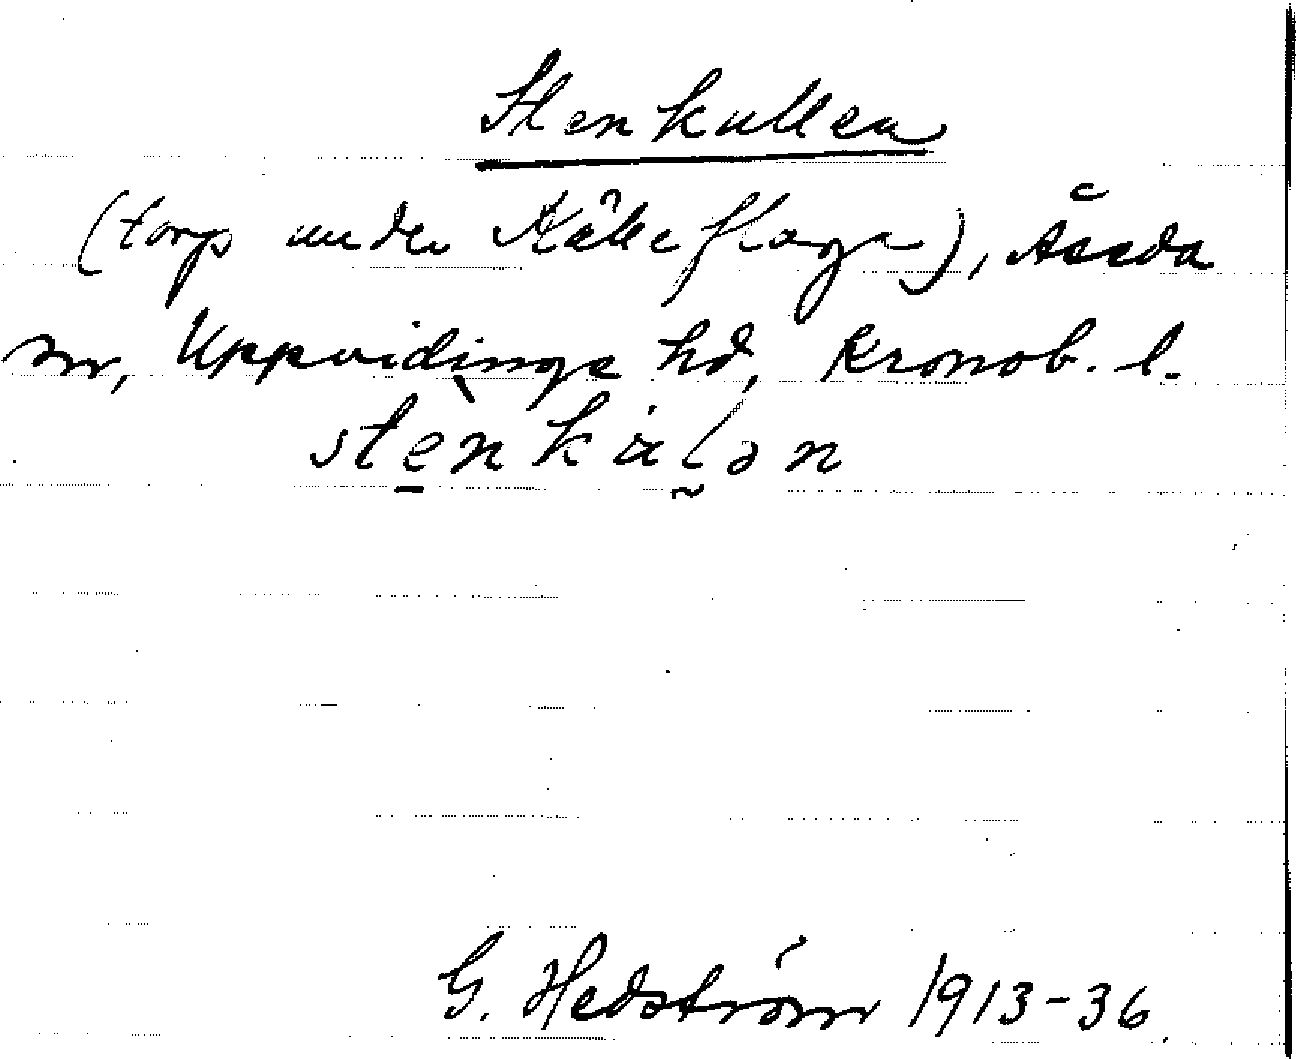 Stenkullen
(torp under Källeflaga), Åseda
sn, Uppvidinge hd, Kronob. l.
stènkálən
G. Hedström 1913-36.